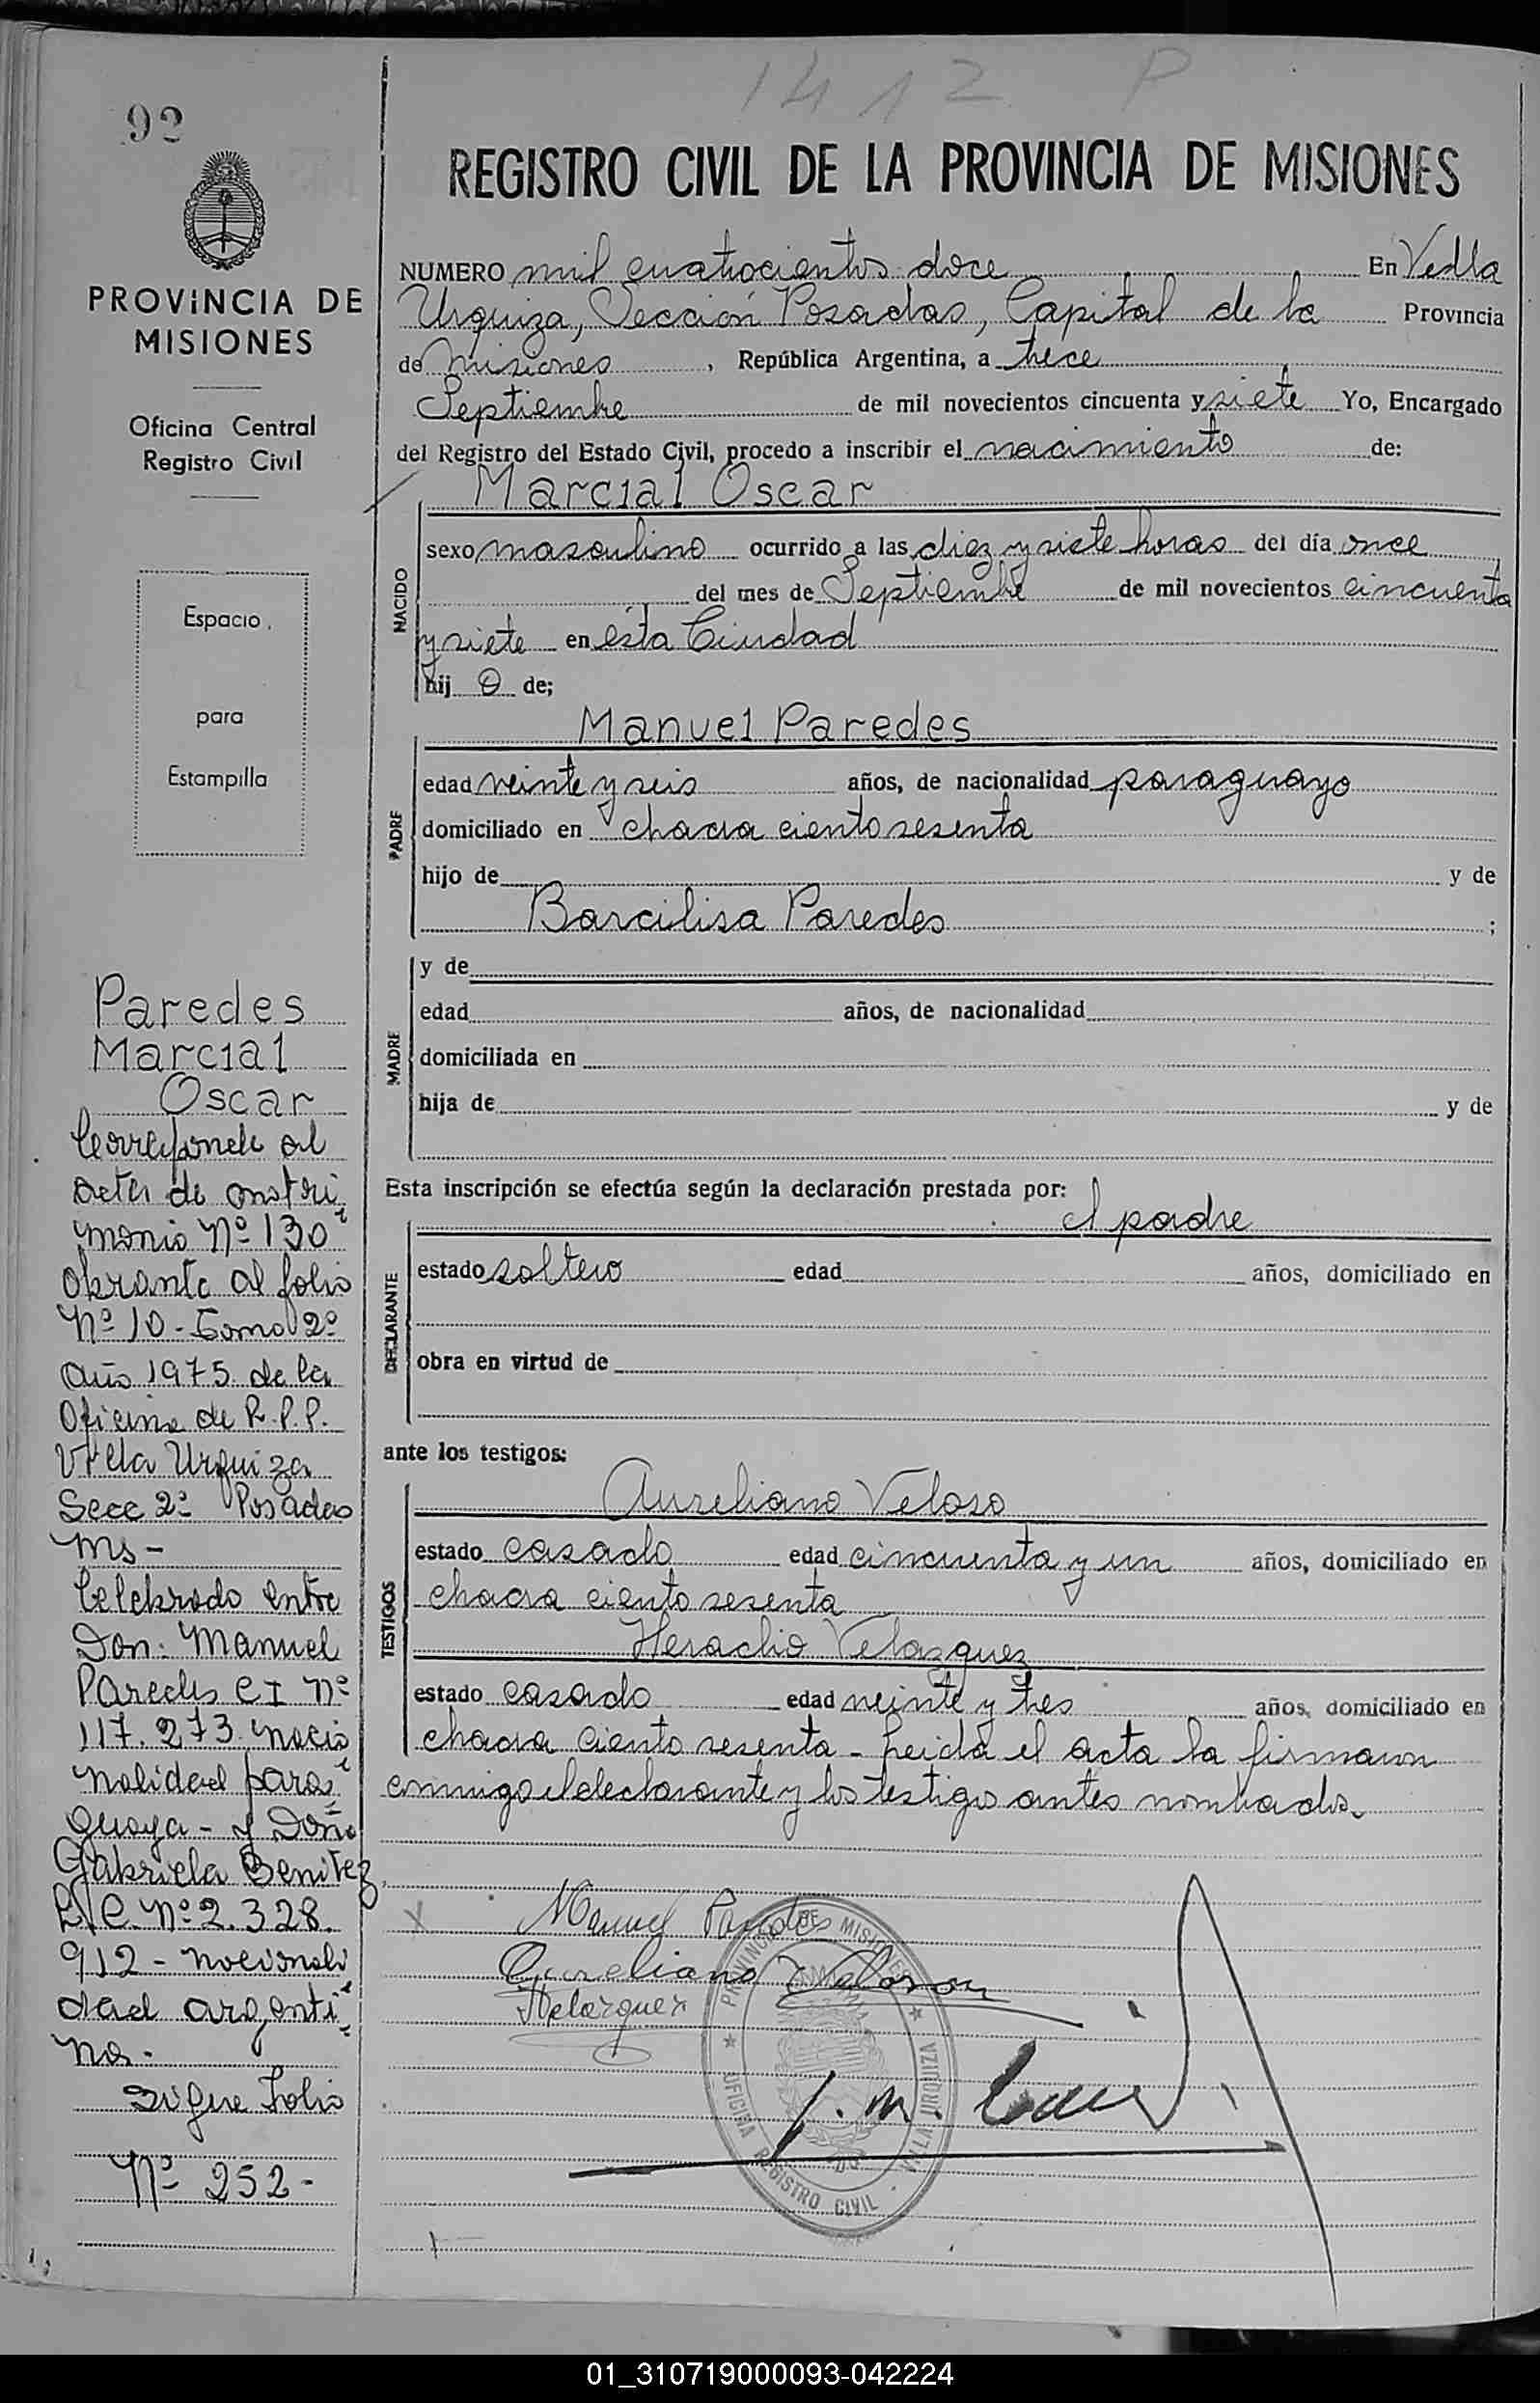 1412 P
92
PROVINCIA DE
MISIONES
Oficina Central
Registro Civil
Espacio
para
Estampilla
Paredes
Marcial
Oscar
Corresponde al
Acta de matri
monio Nº 130
obrante al folio
Nº 10 - Tomo 2º
Año 1975 de la
Oficina de R.P.P.
Villa Urquiza
Secc 2º Posadas
Ms -
Celebrado entre
Don: Manuel
Paredes CI Nº
117.273 nacio
nalidad para
guaya - y Doña
Gabriela Benitez
L/C. Nº 2.328.
912 - nacionali
dad argenti
na.
Sigue Folio
Nº 252 -
REGISTRO CIVIL DE LA PROVINCIA DE MISIONES
NUMERO mil cuatrocientos doce En Villa
Urquiza, Sección Posadas, Capital de la Provincia
de Misiones, República Argentina, a trece
Septiembre de mil novecientos cincuenta y siete Yo, Encargado
del Registro del Estado Civil, procedo a inscribir el nacimiento de:
Marcial Oscar
NACIDO
sexo masculino ocurrido a las diez y siete horas del día once
del mes de Septiembre de mil novecientos cincuenta
y siete en ésta Ciudad
hij o de;
Manuel Paredes
PADRE
edad veinte y seis años, de nacionalidad paraguayo
domiciliado en chacra ciento sesenta
hijo de y de
Barcilisa Paredes ;
MADRE
y de
edad años, de nacionalidad
domiciliada en
hija de y de
Esta inscripción se efectúa según la declaración prestada por:
el padre
DECLARANTE
estado soltero edad años, domiciliado en
obra en virtud de
ante los testigos:
Aureliano Veloso
TESTIGOS
estado casado edad cincuenta y un años, domiciliado en
chacra ciento sesenta
Heraclio Velazquez
estado casado edad veinte y tres años, domiciliado en
chacra ciento sesenta - Leida el acta la firmaron
conmigo el declarante y los testigos antes nombrados.
Manuel Paredes
Aureliano Veloso
Velazquez
PROVINCIA DE MISIONES
OFICINA REGISTRO CIVIL VILLA URQUIZA
01_310719000093-042224